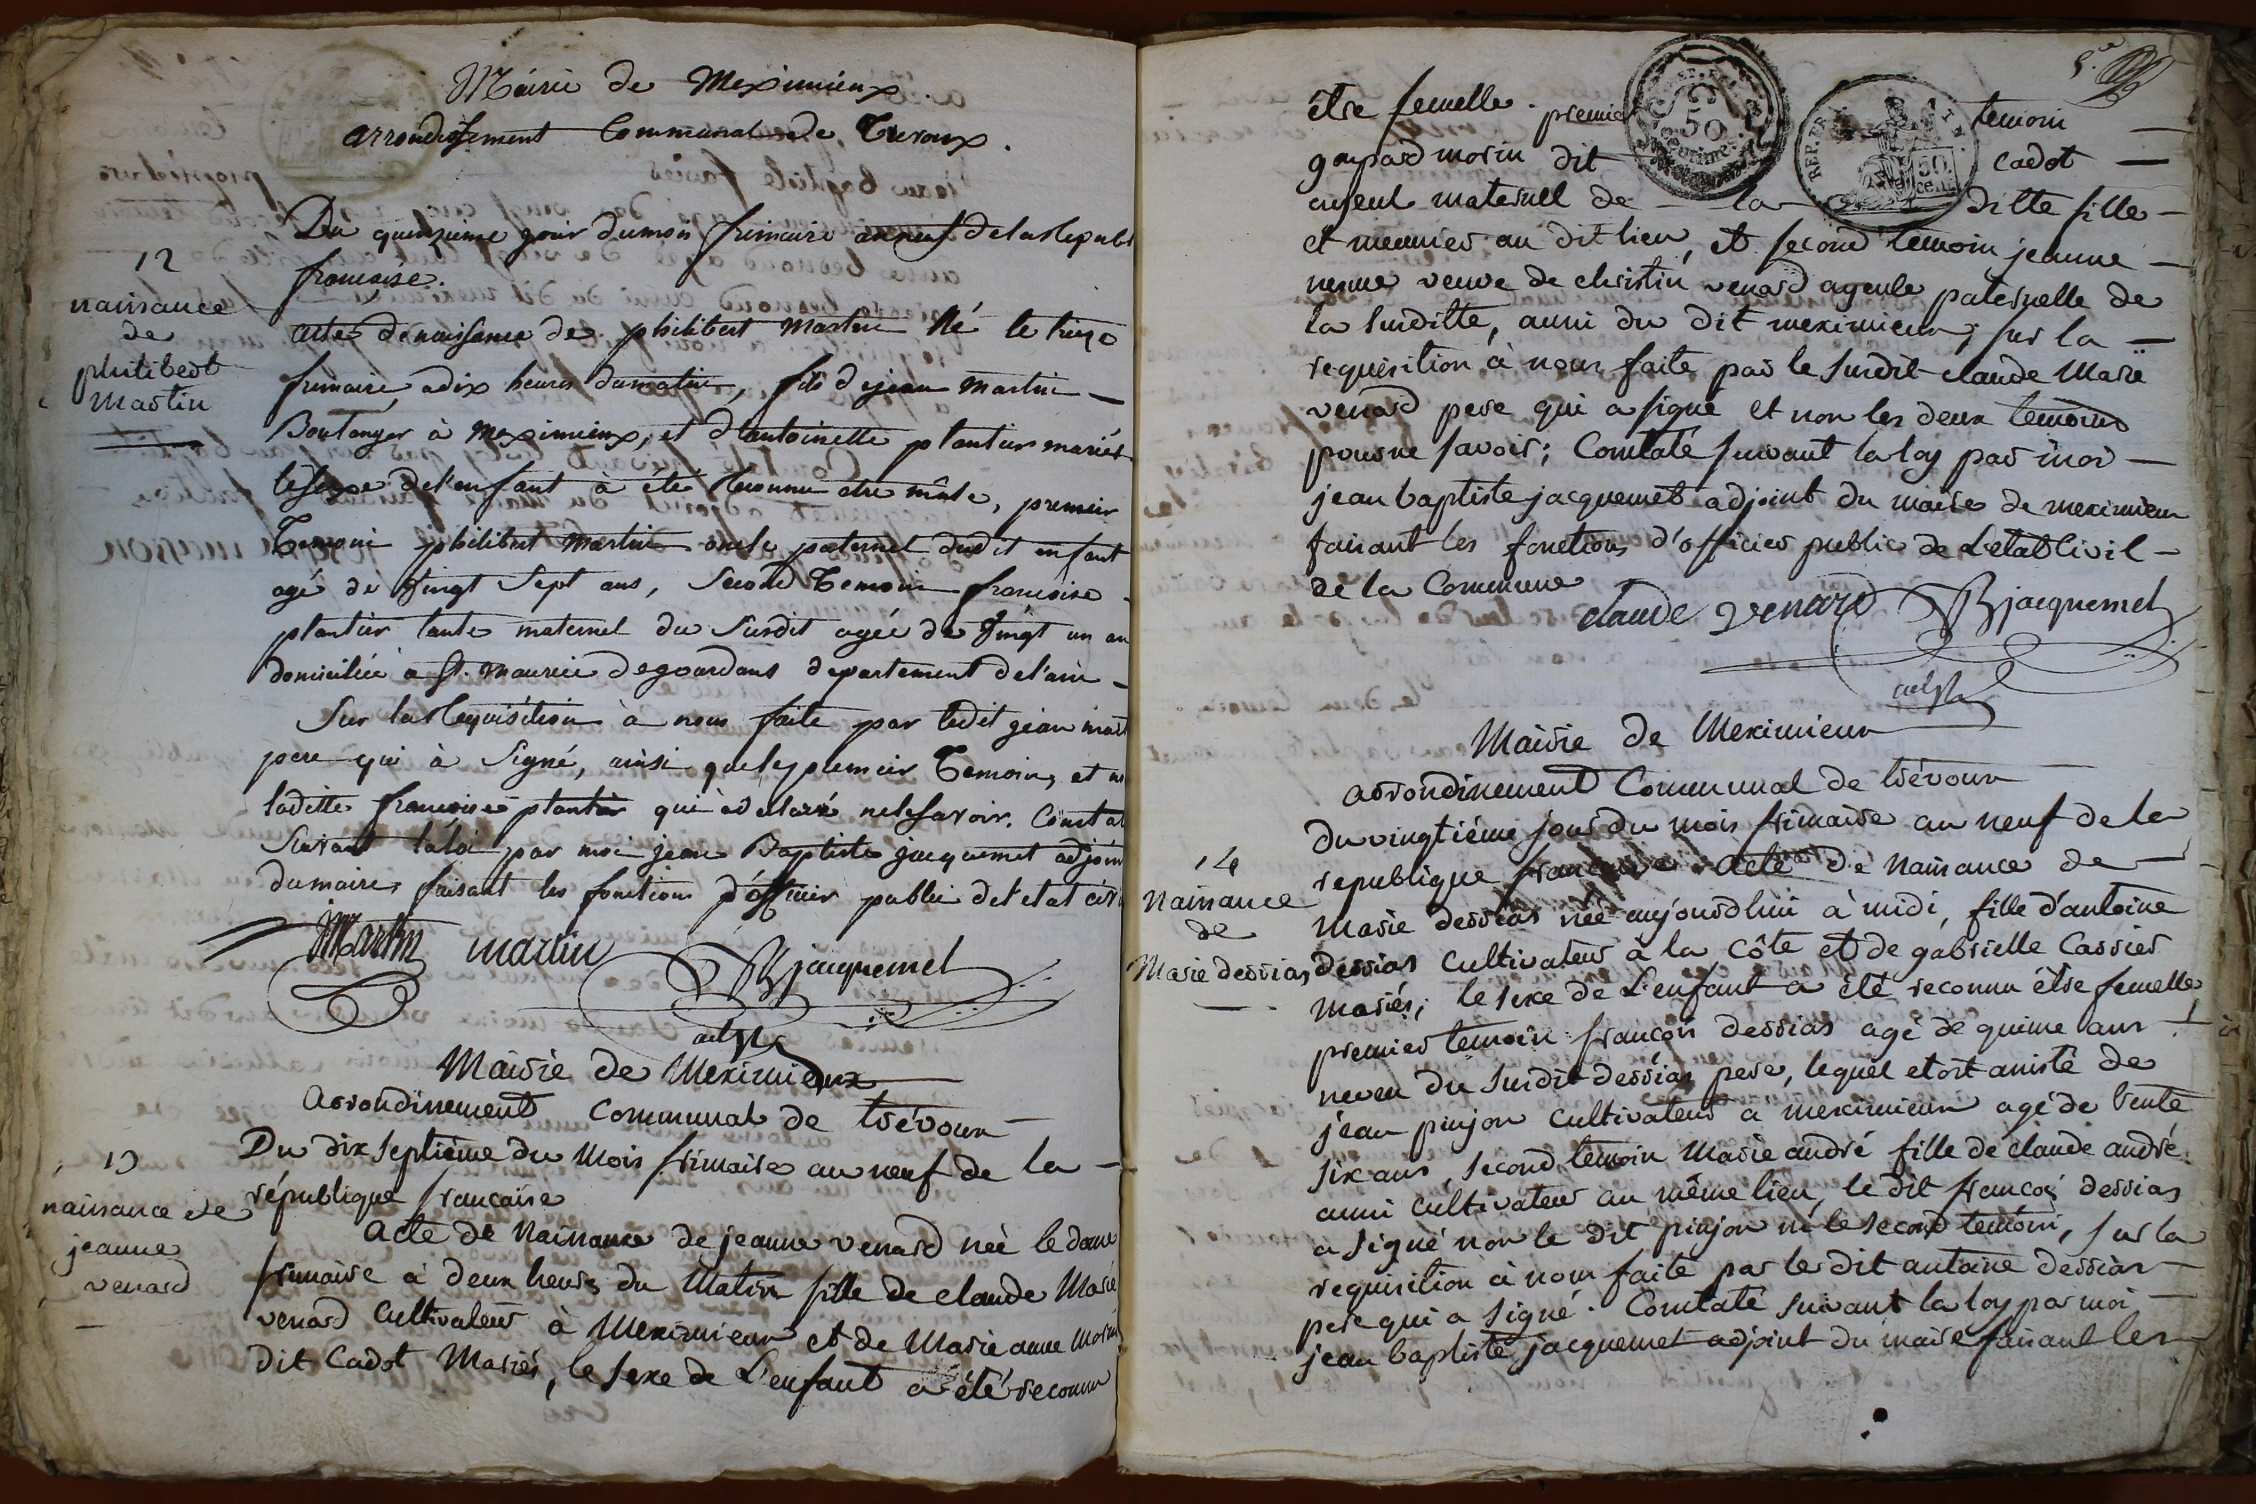 Mairie de Meximieux.
arrondissement Communal de Trevoux.
Du quinzieme jour dumois frimaire an neuf de la Republ
francoise.
12
naissance
de
philibert
Martin
acte denaissance de philibert Martin Né le treize
frimaire adix heures dumatin, fils dejean Martin
Boulanger à Meximieux, et d'antoinette plantier mariés
lesexe del'enfant à été Reconnu etre mâle, premier
Temoin philibert Martin oncle paternel dudit enfant
agé de Vingt Sept ans, Second Temoin francoise
plantier tante maternel du Susdit agée de Vingt un an
domiciliée a St. Maurice degourdans departement del'ain
Sur la Requisition à nous faite par ledit jean mart
pere qui à Signé, ainsi quele premier Temoin, et
laditte francoise plantier qui à déclaré nele savoir. Constat
Suivant la loi par moi jean Baptiste jacquemet adjoin
dumaire, faisant les fonctions d'officier public de l'etat civi
JMartin martin JBjacquemet
adjt
Mairie de Meximieux
arrondissement Communal de trévoux
13
naissance de
jeanne
venard
Du dix septième du Mois frimaire an neuf de la
république francaise
Acte de Naissance de jeanne venard née le douze
frimaire à deux heures du Matin fille de claude Marie
venard Cultivateur à Meximieux et de Marie anne Morin
dit Cadot Mariés, le sexe de L'enfant a été reconnu
5.e
être femelle. premier temoin
REP. FRA
50
centimes
REP. FRA
50.
cent.
gaspard morin dit cadot
ayeul maternel de la ditte fille
et meunier au dit lieu, et second temoin jeanne
veuve de christin venard ayeule paternelle de
la susditte, aussi du dit meximieux; sur la
requisition à nous faite par le susdit claude Marie
venard pere qui a signé et non les deux temoins
pour ne savoir; Constaté suivant la loy par moi
jean baptiste jacquemet adjoint du maire de meximieux
faisant les fonctions d'officier public de L'etat Civil
de la Commune
claude venard JBjacquemet
adjt
Mairie de Meximieux
arrondissement Communal de trévoux
14
Naissance
de
Marie derrias
du vingtième jour du mois frimaire an neuf de la
republique francaise acte de Naissance de
Marie derrias née aujourdhui à midi, fille d'antoine
derrias Cultivateur à la Côte et de gabrielle Carrier
mariés; le sexe de L'enfant a été reconnu être femelle
premier temoin françois derrias agé de quinze ans
neveu du susdit derrias pere, lequel etoit assisté de
jean pinjon cultivateur a meximieux agé de trente
six ans, second temoin Marie andré fille de claude andré
aussi cultivateur au même lieu, le dit françois derrias
a signé non le dit pinjon ni le second temoin, sur la
requisition à nous faite par le dit antoine derrias
pere qui a signé. Constaté suivant la loy par moi
jean baptiste jacquemet adjoint du maire faisant les